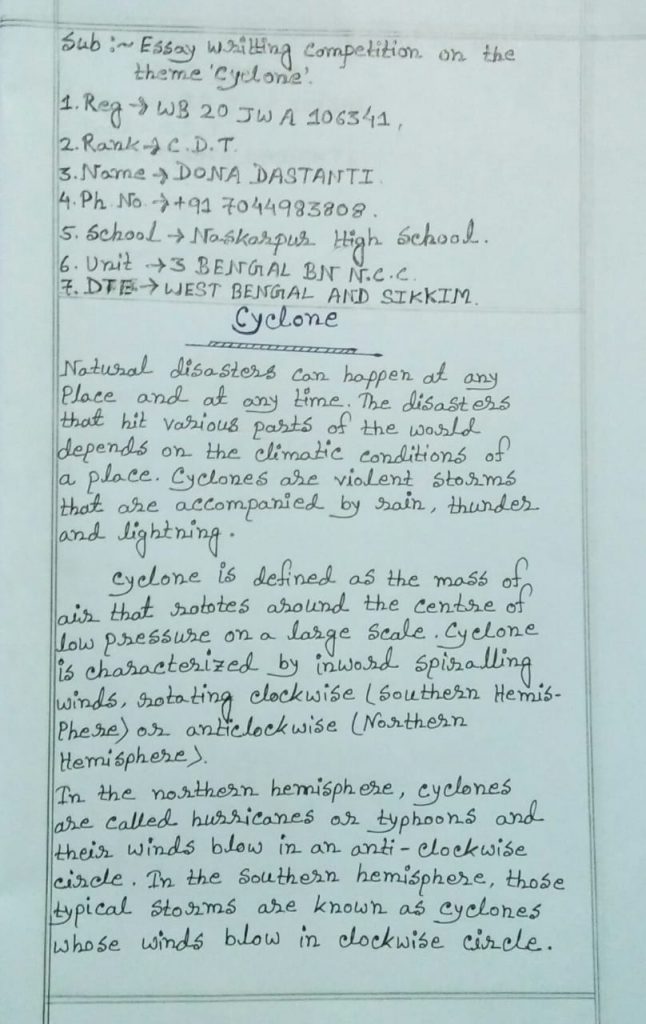 Sub :~ Essay writting competition on the
theme 'Cyclone'.
1. Reg → WB 20 JWA 106341,
2. Rank → C.D.T.
3. Name → DONA DASTANTI.
4. Ph. No. → +91 7044983808.
5. School → Naskarpur High School.
6. Unit → 3 BENGAL BN N.C.C.
7. DTE → WEST BENGAL AND SIKKIM.
Cyclone
Natural disasters can happen at any
Place and at any time. The disasters
that hit various parts of the world
depends on the climatic conditions of
a place. Cyclones are violent storms
that are accompanied by rain, thunder
and lightning.
Cyclone is defined as the mass of
air that rototes around the centre of
low pressure on a large scale. Cyclone
is characterized by inword spiralling
winds, rotating clockwise (Southern Hemis-
Phere) or anticlockwise (Northern
Hemisphere).
In the northern hemisphere, cyclones
are called hurricanes or typhoons and
their winds blow in an anti-clockwise
circle. In the Southern hemisphere, those
typical storms are known as cyclones
whose winds blow in clockwise circle.